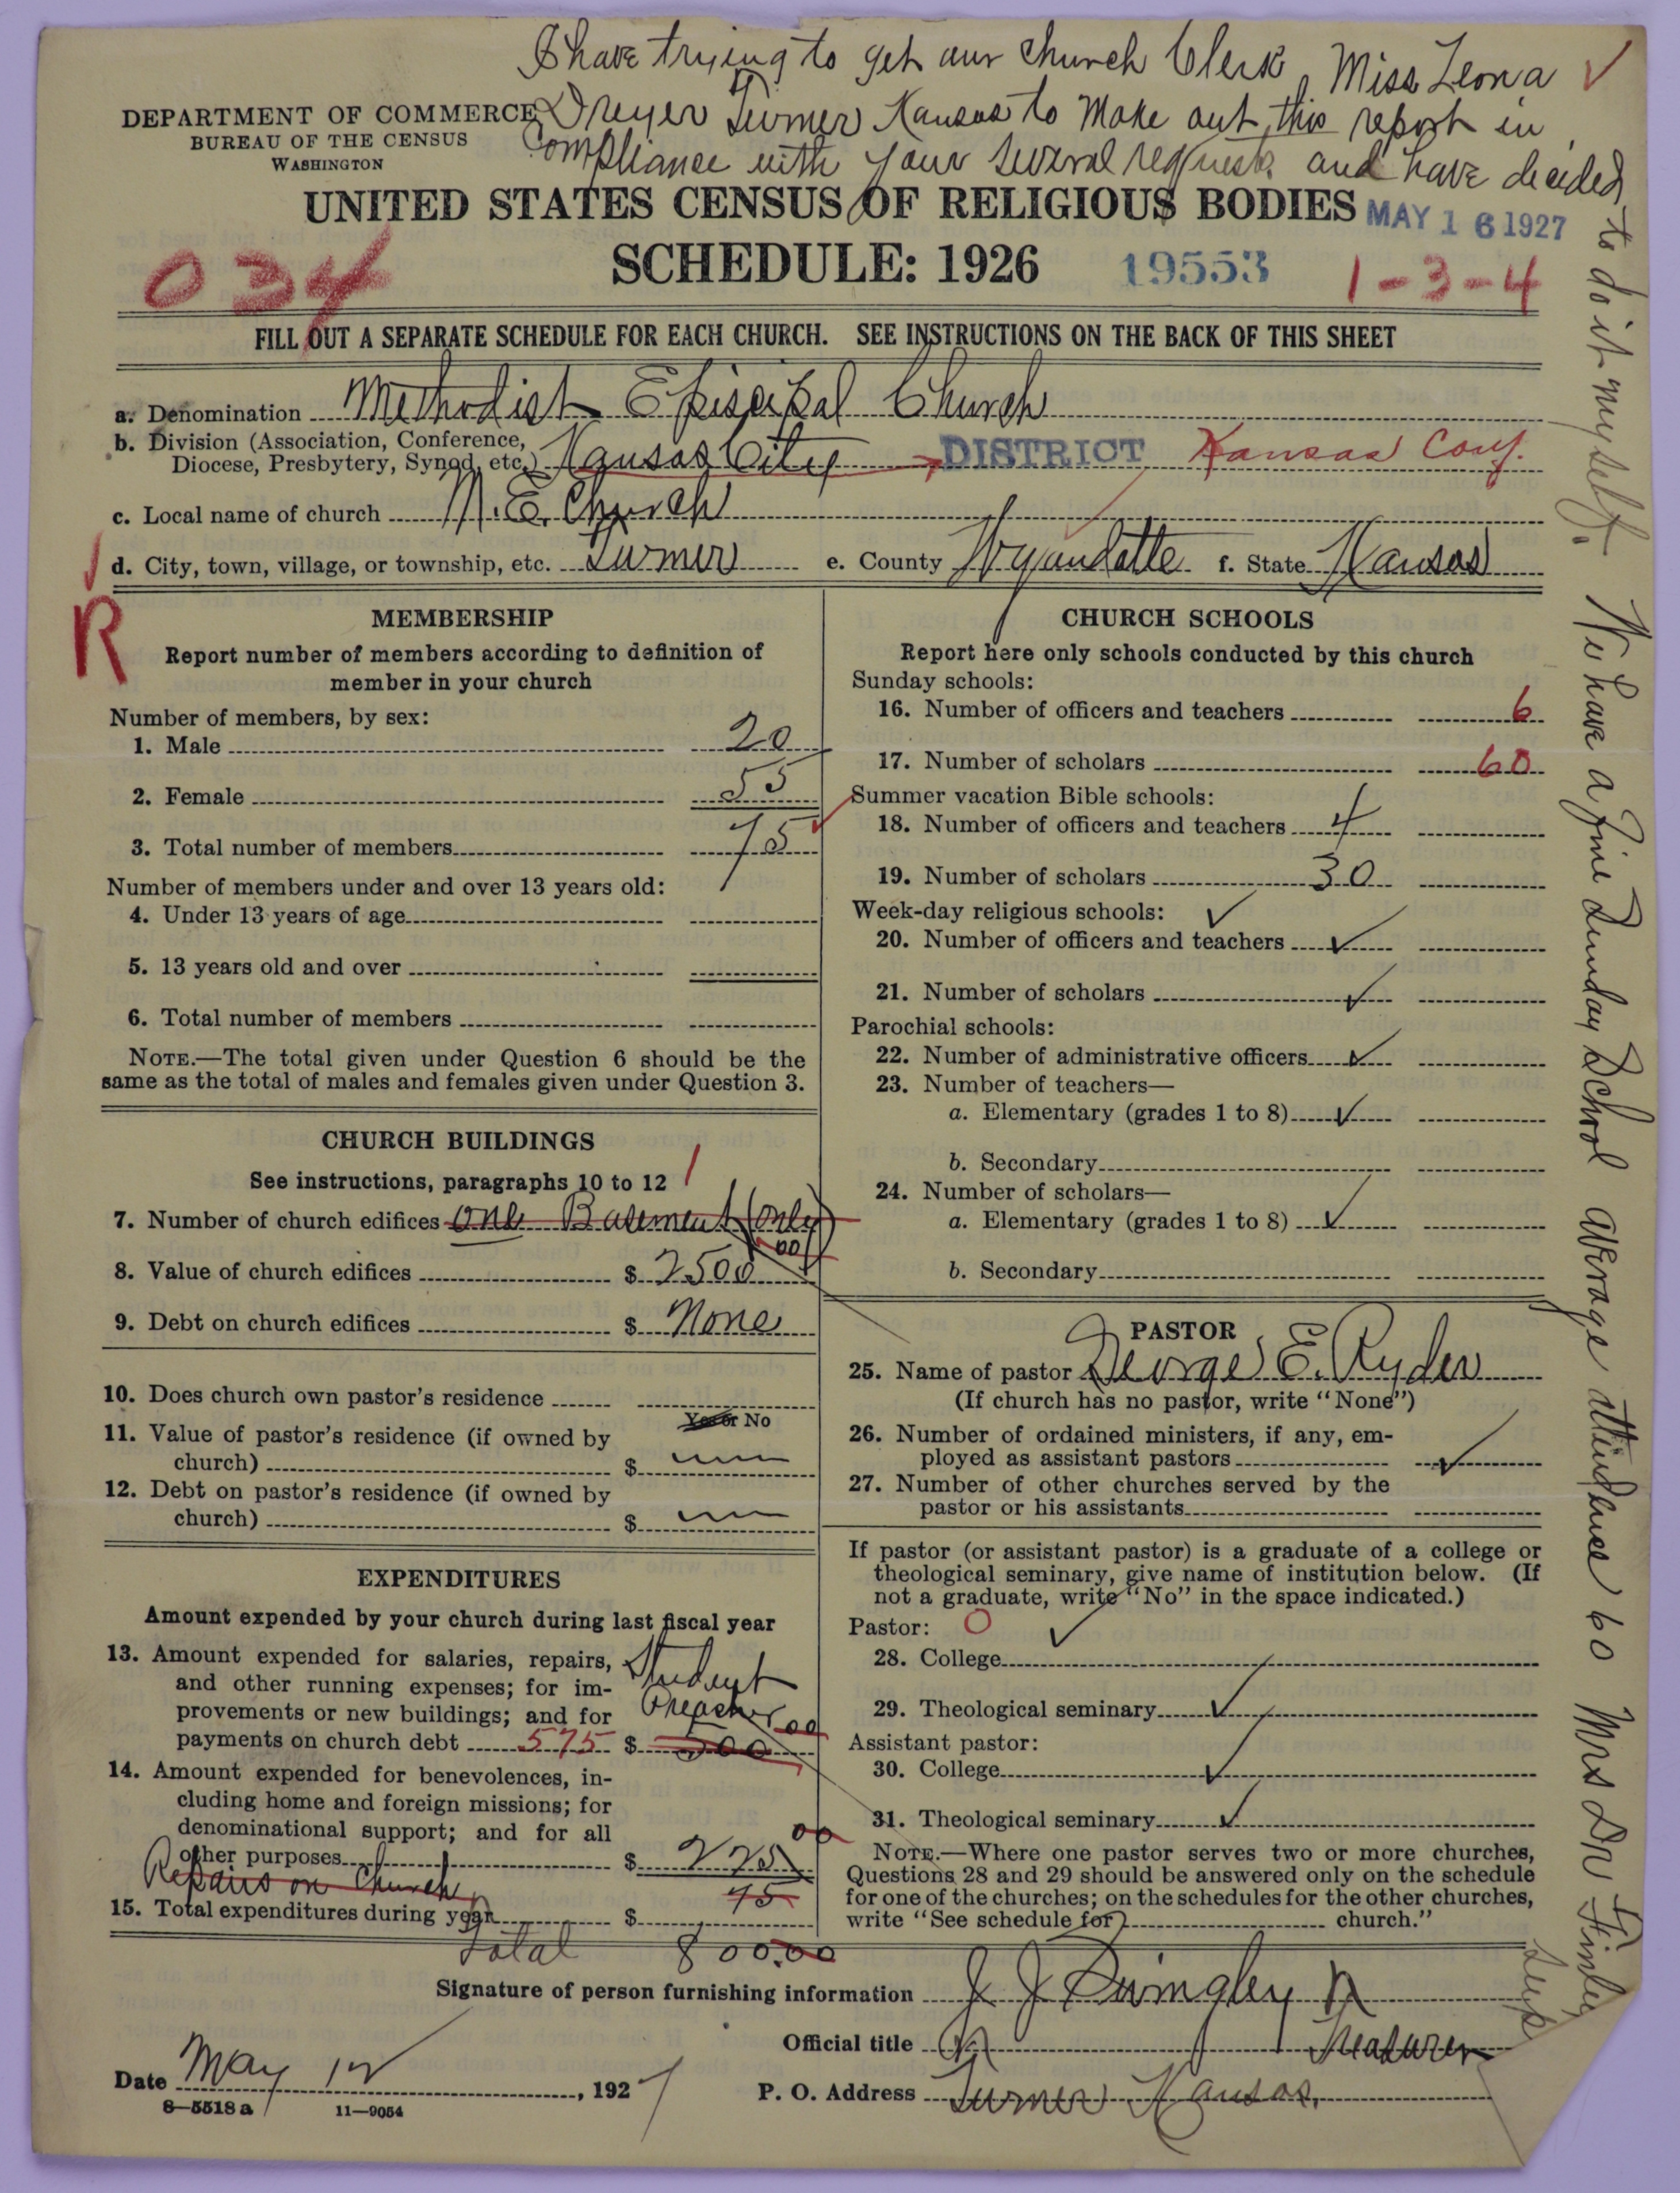 I have trying to get our Church Clerk, Miss Leona
Dreyer Turner Kansas to Make out this report in
Compliance with your several requests and have decided
to do it myself. We have a fine Sunday School average attendence 60 Mrs Dr Finley
Supt
DEPARTMENT OF COMMERCE
BUREAU OF THE CENSUS
WASHINGTON
UNITED STATES CENSUS OF RELIGIOUS BODIES
MAY 16 1927
SCHEDULE: 1926
19553
034
1-3-4
FILL OUT A SEPARATE SCHEDULE FOR EACH CHURCH. SEE INSTRUCTIONS ON THE BACK OF THIS SHEET
a. Denomination Methodist Episcipal Church
b. Division (Association, Conference,
Diocese, Presbytery, Synod, etc.) Kansas City DISTRICT Kansas Conf.
c. Local name of church M.E. Church
d. City, town, village, or township, etc. Turner e. County Wyandotte f. State Kansas
R
MEMBERSHIP
Report number of members according to definition of
member in your church
Number of members, by sex:
1. Male 20
2. Female 55
3. Total number of members 75
Number of members under and over 13 years old:
4. Under 13 years of age
5. 13 years old and over
6. Total number of members
NOTE.—The total given under Question 6 should be the
same as the total of males and females given under Question 3.
CHURCH BUILDINGS
See instructions, paragraphs 10 to 12
1
7. Number of church edifices one Basement (only)
8. Value of church edifices $ 2500 00
9. Debt on church edifices $ None
10. Does church own pastor's residence
Yes or No
11. Value of pastor's residence (if owned by
church) $
12. Debt on pastor's residence (if owned by
church) $
EXPENDITURES
Amount expended by your church during last fiscal year
13. Amount expended for salaries, repairs,
and other running expenses; for im-
provements or new buildings; and for
payments on church debt 575 $ 500 00
Student
Preacher
14. Amount expended for benevolences, in-
cluding home and foreign missions; for
denominational support; and for all
other purposes $ 225 00
Repairs on Church 75
15. Total expenditures during year $
Total 800.00
CHURCH SCHOOLS
Report here only schools conducted by this church
Sunday schools:
16. Number of officers and teachers 6
17. Number of scholars 60
Summer vacation Bible schools:
18. Number of officers and teachers 4
19. Number of scholars 30
Week-day religious schools:
20. Number of officers and teachers
21. Number of scholars
Parochial schools:
22. Number of administrative officers
23. Number of teachers—
a. Elementary (grades 1 to 8)
b. Secondary
24. Number of scholars—
a. Elementary (grades 1 to 8)
b. Secondary
PASTOR
25. Name of pastor George E. Ryder
(If church has no pastor, write "None")
26. Number of ordained ministers, if any, em-
ployed as assistant pastors
27. Number of other churches served by the
pastor or his assistants
If pastor (or assistant pastor) is a graduate of a college or
theological seminary, give name of institution below. (If
not a graduate, write "No" in the space indicated.)
Pastor: O
28. College
29. Theological seminary
Assistant pastor:
30. College
31. Theological seminary
NOTE.—Where one pastor serves two or more churches,
Questions 28 and 29 should be answered only on the schedule
for one of the churches; on the schedules for the other churches,
write "See schedule for church."
Signature of person furnishing information J J
Official title Treasurer
Date May 12, 1927
P. O. Address Turner Kansas.
8—5518 a
11—9054